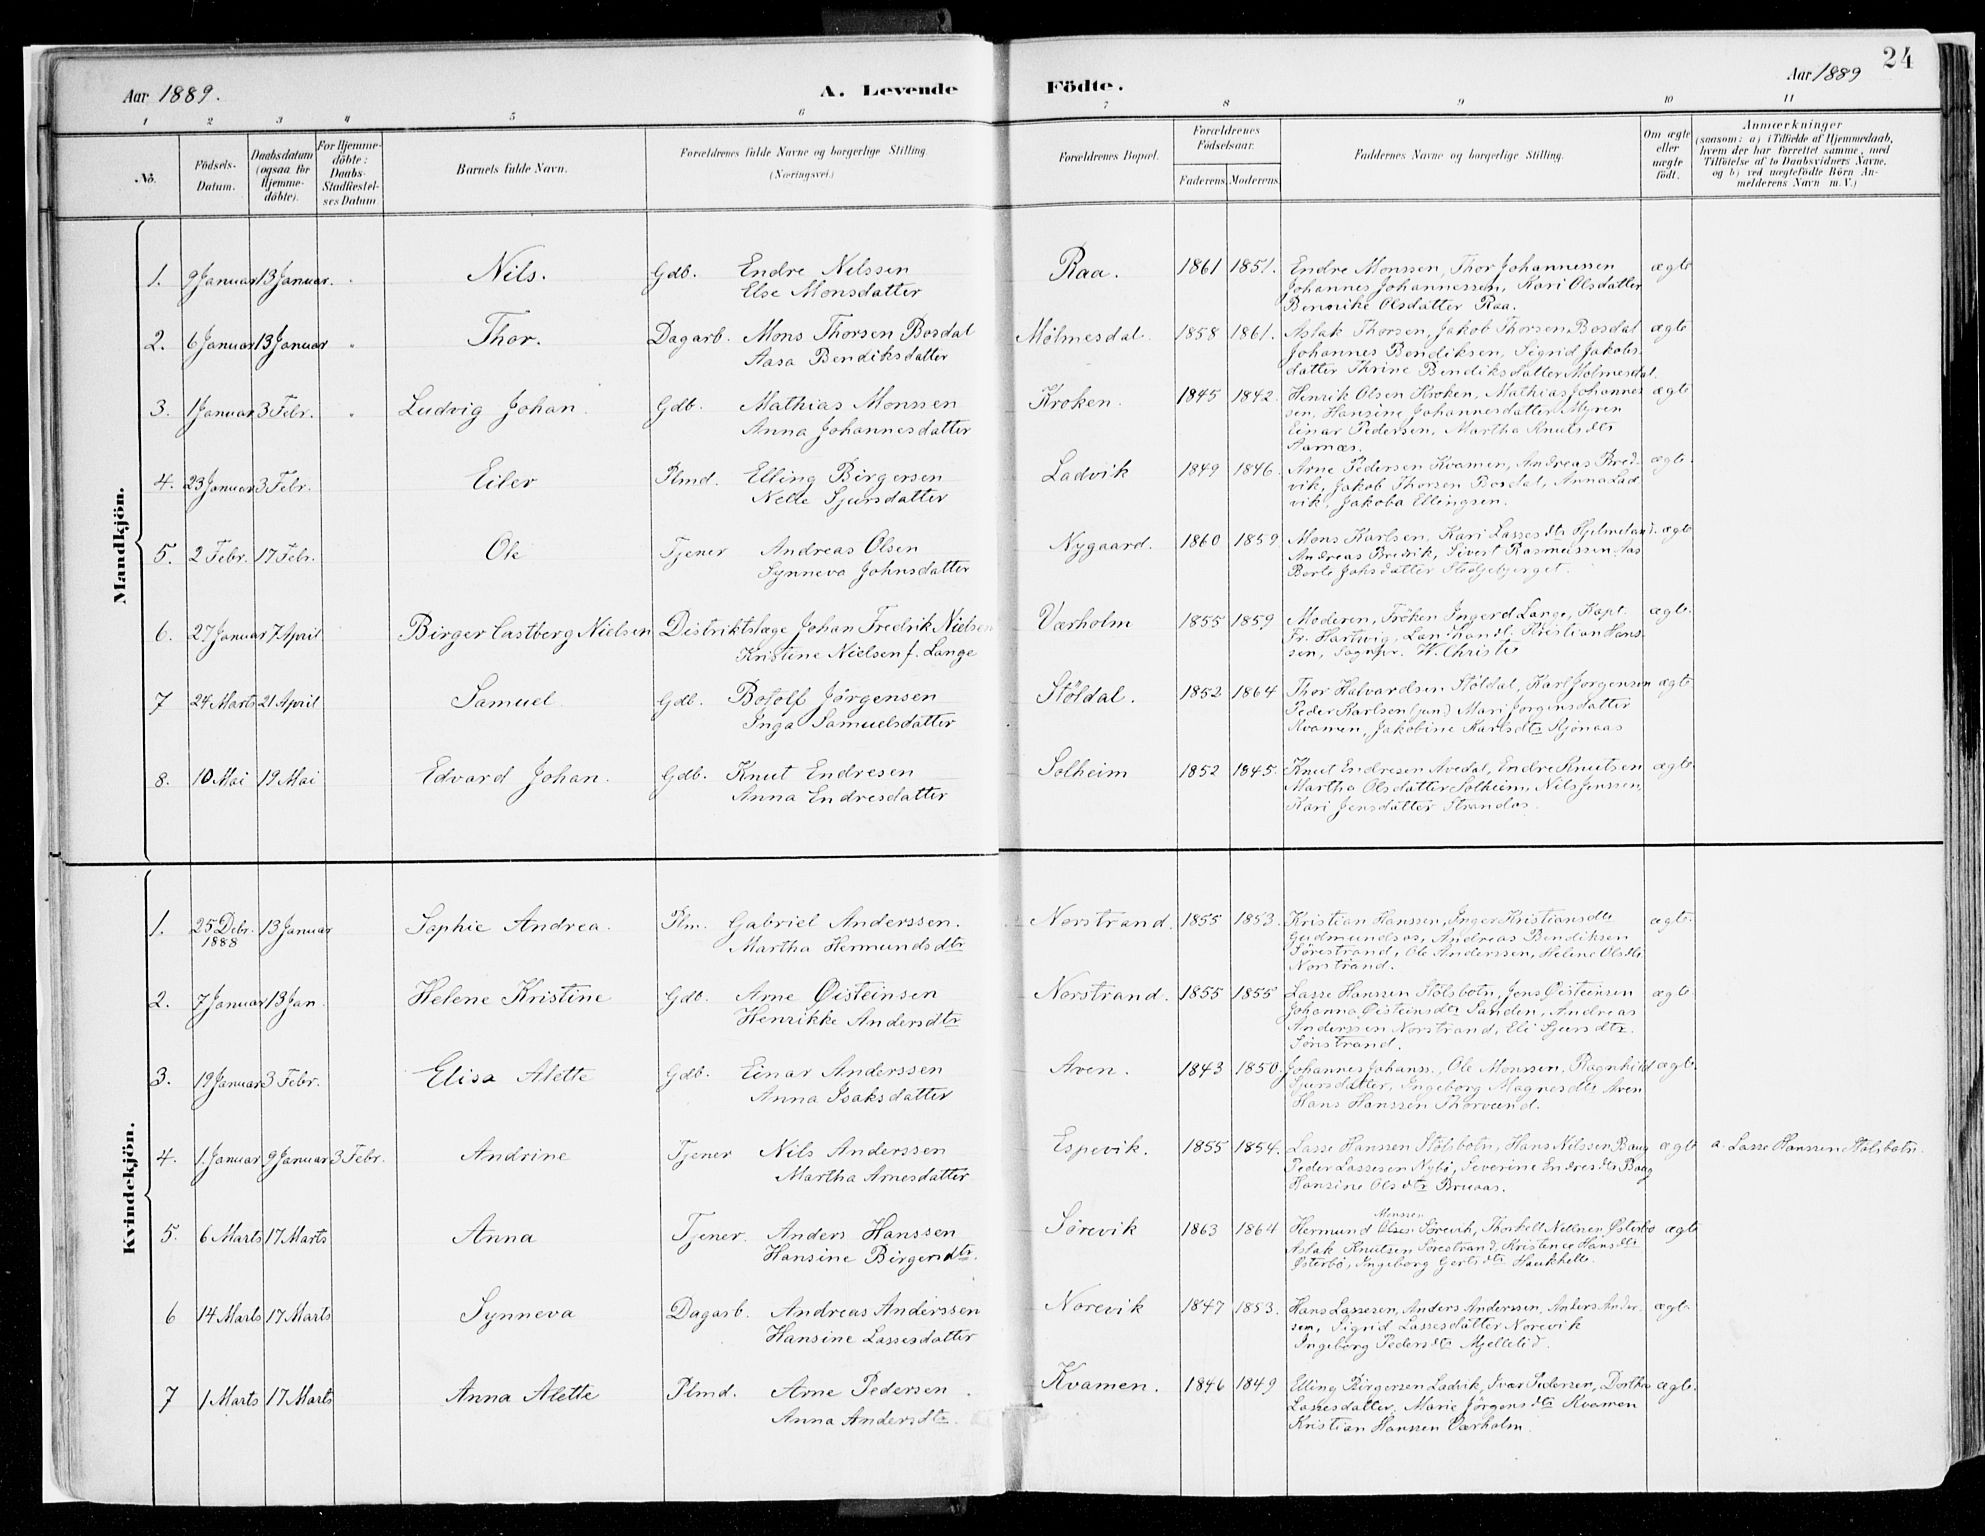 24
Aar 1889. A. Levende Födte. Aar 1889
1 2 3 4 5 6 7 8 9 10 11
No. Födsels-Datum. Daabsdatum (ogsaa for Hjemme-döbte). For Hjemme-döbte: Daabs-Stadfæstel-ses Datum Barnets fulde Navn. Forældrenes fulde Navne og borgerlige Stilling. (Næringsvei.) Forældrenes Bopæl. Forældrenes Födselsaar. Faderens Moderens Faddernes Navne og borgerlige Stilling. Om ægte eller uægte födt. Anmærkninger (saasom: a) i Tilfælde af Hjemmedaab, hvem der har forrettet samme, med Tilföielse af to Daabsvidners Navne, og b) ved uægtefödte Börn An-melderens Navn m. V.)
Mandkjön.
1. 9 Januar 13 Januar. Nils. Gdb. Endre Nilssen Raa. 1861 1851. Endre Monssen, Thor Johannessen ægte
Else Monsdatter Johannes Johannessen, Kari Olsdatter
Bennike Olsdatter Raa.
2. 6 Januar 13 Januar Thor. Dagarb. Mons Thorsen Bosdal Mølmesdal. 1858 1861. Aslak Thorsen, Jakob Thorsen Bosdal ægte
Aasa Bendiksdatter Johannes Bendiksen, Sigrid Jakobs-
datter Thrine Bendiksdatter Mølmesdal.
3. 1 Januar 3 Febr. Ludvig Johan. Gdb. Mathias Monssen Kroken. 1845 1842. Henrik Olsen Kroken, Mathias Johannes- ægte
Anna Johannesdatter sen, Hansine Johannesdatter Myren
Einar Pedersen, Martha Knutsdtr
Aarnæs.
4. 23 Januar 3 Febr. Eiler Plmd. Elling Birgersen Ladvik 1849 1846. Arne Pedersen Kvamen, Andreas Bred- ægte.
Nette Sjursdatter vik, Jakob Thorsen Bosdal, Anna Lad-
vik, Jakoba Ellingsen.
5. 2 Febr. 17 Febr. Ole Tjener Andreas Olsen Nygaard. 1860 1859 Mons Karlsen, Kari Lassesdtr Hjelmeland. ægte
Synneva Johnsdatter Andreas Bredvik, Sivert Rasmussen
Berte Johsdatter Stedjebjerget.
6. 27 Januar 7 April Birger Castberg Nielsen Distriktslæge Johan Fredrik Nielsen Værholm 1855 1859 Moderen, Frøken Ingerd Lange, Kapt. ægte.
Kristine Nielsen f. Lange Fr. Hartvig, Lan.handl. Kristian Hans-
sen, Sognpr. W. Christie
7 24 Marts 21 April Samuel. Gdb. Botolf Jørgensen Stöldal. 1852 1864 Thor Halvardsen Stöldal, Karl Jørgensen ægte
Inga Samuelsdatter Peder Karlsen (jun) Mari Jørgensdatter
Kvamen, Jakobine Karlsdtr Kjønaas
8. 10 Mai 19 Mai Edvard Johan. Gdb. Knut Endresen Solheim 1852 1845. Knut Endresen Avedal, Endre Knutsen ægte
Anna Endresdatter Martha Olsdatter Solheim, Nils Jenssen,
Kari Jensdatter Strandos.
Kvindekjön.
1. 25 Debr. 1888 13 Januar Sophie Andrea. Plm. Gabriel Anderssen. Norstrand. 1855 1853. Kristian Hanssen, Inger Kristiansdtr ægte.
Martha Hermundsdtr Gudmundsos, Andreas Bendiksen
Sørestrand, Ole Anderssen, Helene Olsdtr
Norstrand.
2. 7 Januar 13 Jan. Helene Kristine Gdb. Arne Øisteinsen Norstrand. 1855 1855 Lasse Hanssen Stölsbotn, Jens Øisteinsen ægte.
Henrikke Andersdtr Johanna Øisteinsdtr Sanden, Andreas
Anderssen Norstrand, Eli Sjursdtr.
Sørstrand.
3. 19 Januar 3 Febr. Elisa Alette Gdb. Einar Anderssen Aven. 1843 1850. Johannes Johanss., Ole Monssen, Ragnhild ægte.
Anna Isaksdatter Sjursdatter, Ingeborg Magnesdtr Aven
Hans Hanssen Thorvund.
4. 1. Januar 9 Januar 3 Febr. Andrine Tjener Nils Anderssen Espevik. 1855 1854. Lasse Hanssen Stölsbotn, Hans Nilssen Baug ægte a. Lasse Hanssen Stölsbotn.
Martha Arnesdatter Peder Lassesen Nybö, Severine Endresdtr Baug
Hansine Olsdtr Bruaas.
5. 6 Marts 17 Marts Anna Tjener. Anders Hanssen Sørevik 1863 1864 Hermund Olsen Monssen Sørevik, Thorkell Nilssen Østerbø ægte
Hansine Birgersdtr. Aslak Knutsen Sørestrand, Kristence Hansdtr
Østerbø, Ingeborg Gertsdtr Haukhelle.
6 14 Marts 17 Marts Synneva Dagarb. Andreas Anderssen Norevik 1847 1853. Hans Lassesen, Anders Anderssen, Anders Ander- ægte
Hansine Lassesdatter sen, Sigrid Lassesdatter Norevik
Ingeborg Pedersdtr Mjellelid.
7 1 Marts 17 Marts Anna Alette Plmd. Arne Pedersen Kvamen. 1846 1849 Elling Birgersen Ladvik, Ivar Pedersen, Dorthea ægte.
Anna Andersdtr. Lassesdatter, Marie Jørgensdtr Kvamen
Kristian Hanssen Værholm.